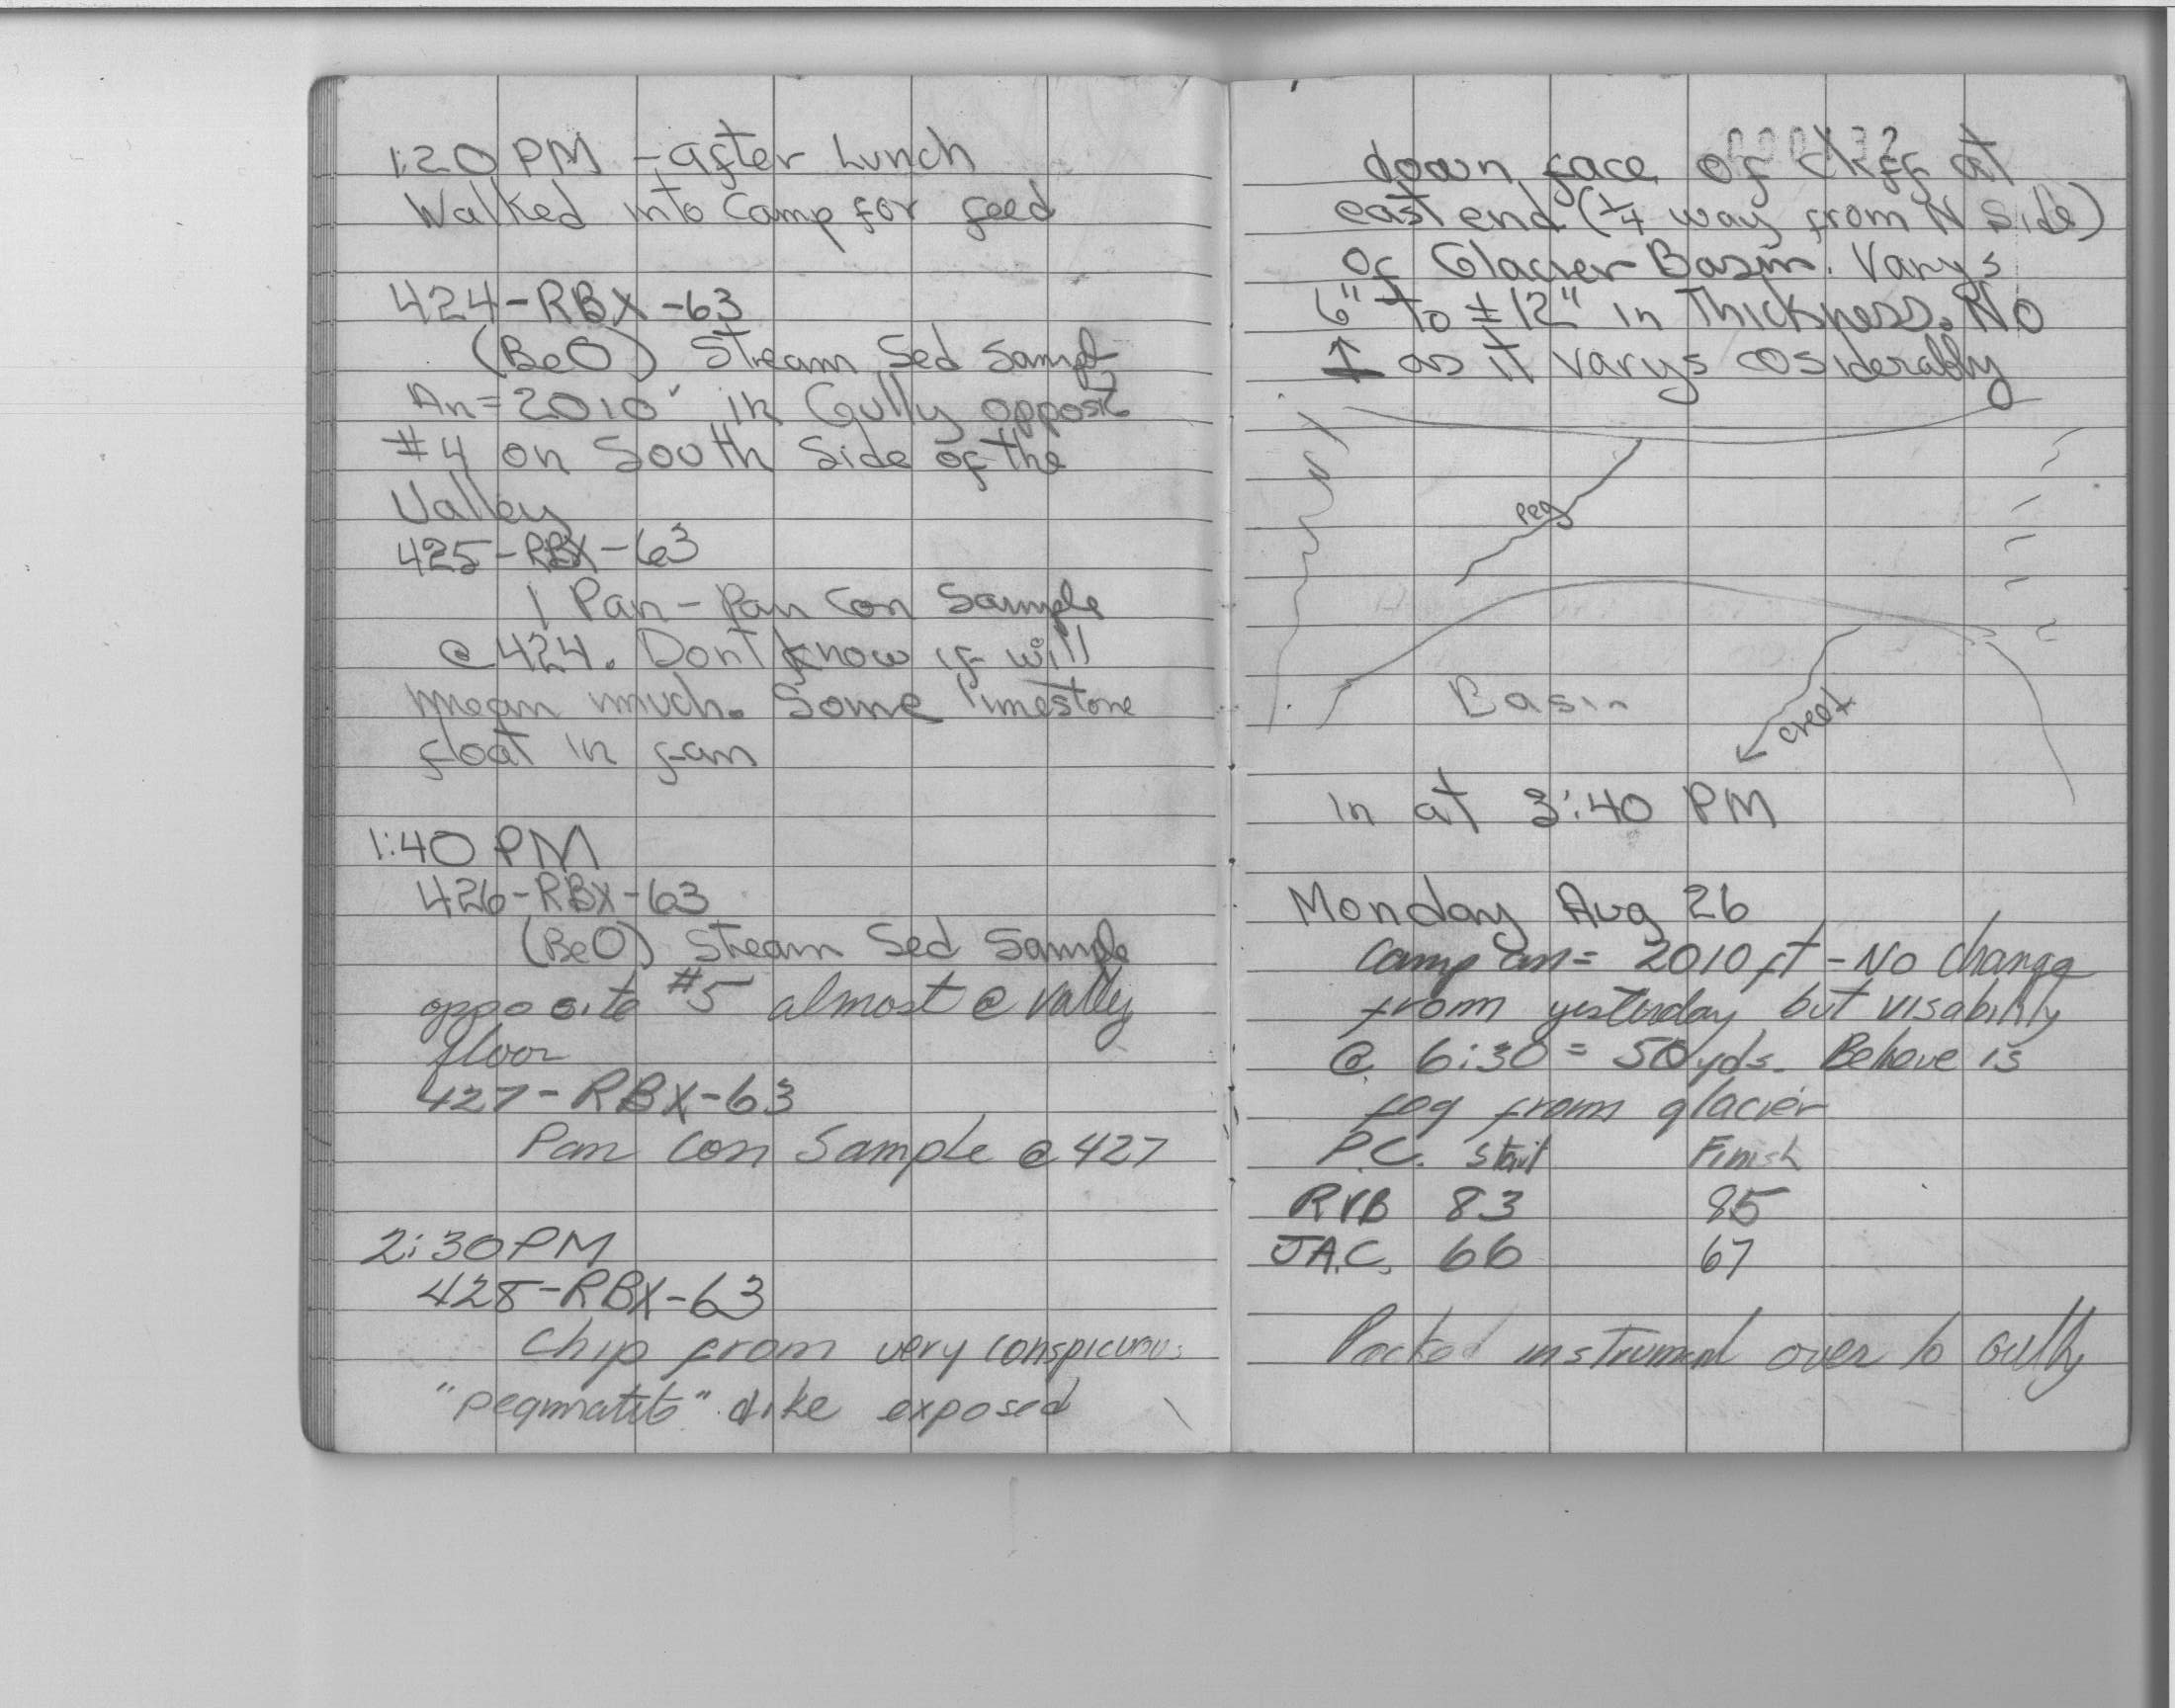 1:20 PM - after Lunch
Walked into Camp for feed
424-RBX-63
(BeO) Stream Sed Sampl
An = 2010' in Gully opposit
#4 on South Side of the
Valley
425-RBX-63
1 Pan - Pan Con Sample
@ 424. Dont know if will
mean much. Some limestone
float in fan
1:40 PM
426-RBX-63
(BeO) Stream Sed Sample
opposite #5 almost @ Vally
floor
427-RBX-63
Pan Con Sample @ 427
2:30 PM
428-RBX-63
Chip from very conspicuous
"pegmatite" dike exposed
down face of cliff at
east end (1/4 way from N Side)
of Glacier Basin. Varys
6" to ±12" in Thickness. No
as it varys cosiderably
peg
Basin
creek
in at 3:40 PM
Monday Aug 26
Camp an = 2010 ft - No change
from yesterday but visability
@ 6:30 = 50 yds. Believe is
fog from glacier
P.C. Start Finish
RVB 83 85
J.A.C. 66 67
Packed instrument over to gully